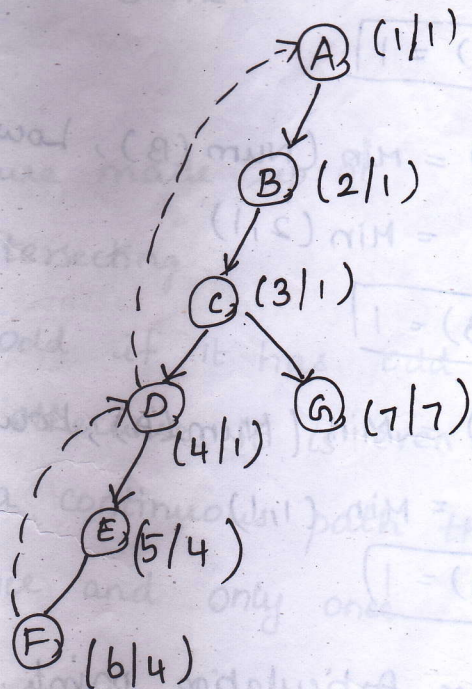 A (1/1)
B (2/1)
C (3/1)
D (4/1)
G (7/7)
E (5/4)
F (6/4)